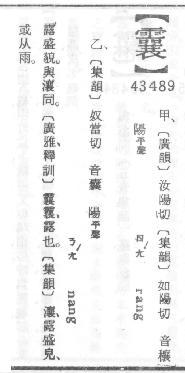 【䨶】
43489
甲、〔廣韻〕汝陽切〔集韻〕如陽切 音穰
陽平聲 ㄖㄤˊ rang
乙、〔集韻〕奴當切 音囊 陽平聲
ㄋㄤˊ nang
露盛皃與瀼同。〔廣雅、釋訓〕䨶䨶、露也。〔集韻〕瀼、露盛皃、
或从雨。